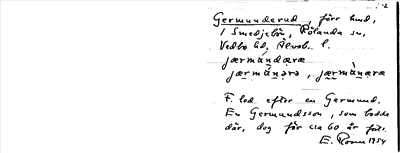 Germunderud, förr hus,
i Smedjebön, Rölanda sn,
Vedbo hd, Älvsb. l.
jærmúndæræ
jærmúnəræ, jærmùnæræ
F. led efter en Germund.
En Germundsson, som bodde
där, dog för c:a 60 år sen.
E. 1954